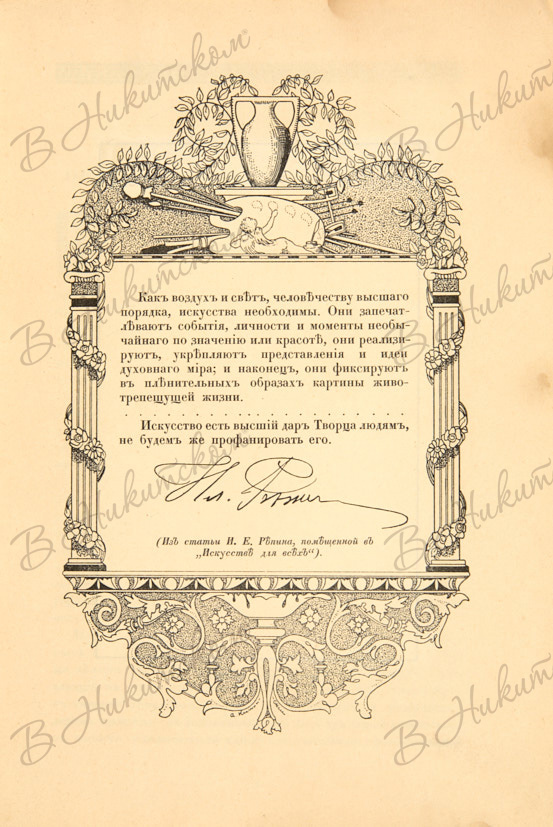 Какъ воздухъ и свѣтъ, человѣчеству высшаго
порядка, искусства необходимы. Они запечат-
лѣваютъ событія, личности и моменты необы-
чайнаго по значенію или красотѣ, они реализи-
руютъ, укрѣпляютъ представленія и идеи
духовнаго міра; и наконецъ, они фиксируютъ
въ плѣнительныхъ образахъ картины живо-
трепещущей жизни.
. . . . . . . . . . . . . . . . . . . . .
Искусство есть высшій даръ Творца людямъ,
не будемъ же профанировать его.
Ил. Рѣпин
(Изъ статьи И. Е. Рѣпина, помѣщенной въ
„Искусствѣ для всѣхъ“).
В Никитском
В Никитском
В Никитском
В Никитском
В Никитском
В Никитском
В Никитском
В Никитском